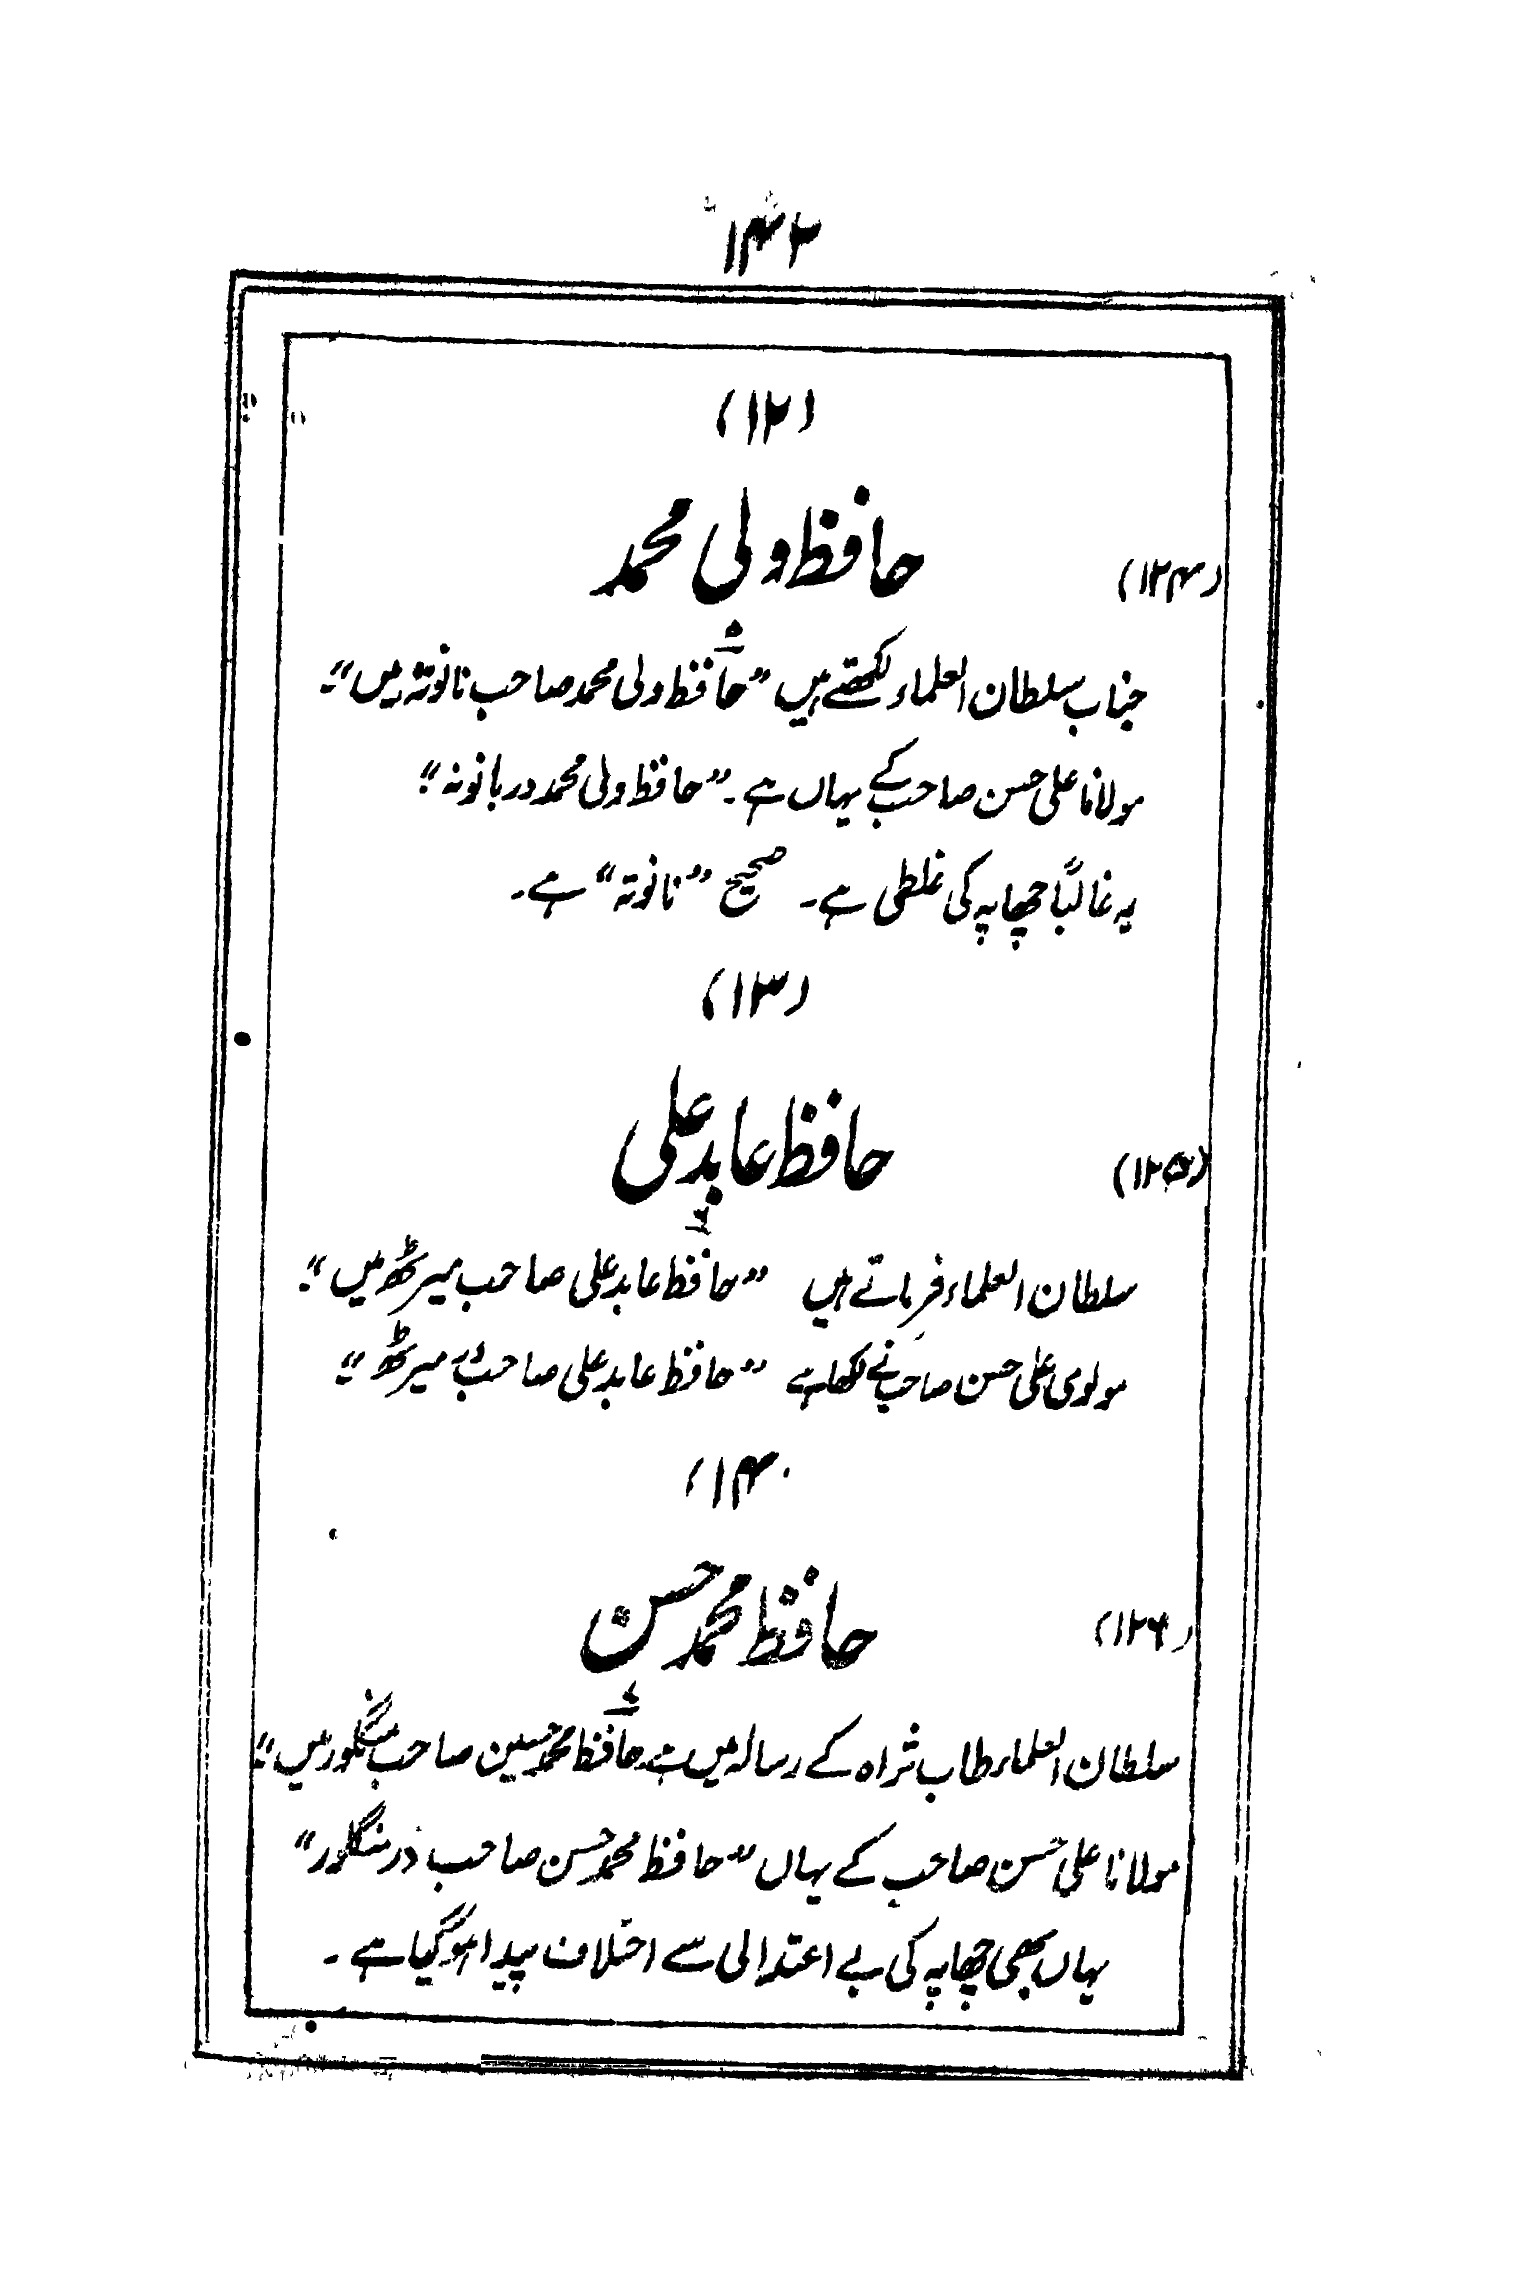 ۱۴۲
(۱۲)
حافظ ولی محمد
(۱۲۴)
جناب سلطان العلماء لکھتے ہیں "حافظ ولی محمد صاحب نانوتہ میں"۔
مولانا علی حسن صاحب کے یہاں ہے۔ "حافظ ولی محمد در بانونہ"۔
یہ غالباً چھاپہ کی غلطی ہے۔ صحیح "نانوتہ" ہے۔
(۱۳)
حافظ عابد علی
(۱۲۵)
سلطان العلماء فرماتے ہیں "حافظ عابد علی صاحب میرٹھ میں"۔
مولوی علی حسن صاحب نے لکھا ہے "حافظ عابد علی صاحب در میرٹھ"۔
(۱۴)
حافظ محمد حسن
(۱۲۶)
سلطان العلماء طاب ثراہ کے رسالہ میں ہے۔ حافظ محمد حسین صاحب منگلور میں"۔
مولانا علی حسن صاحب کے یہاں "حافظ محمد حسن صاحب در منگلور"
یہاں بھی چھاپہ کی بے اعتدالی سے اختلاف پیدا ہو گیا ہے۔